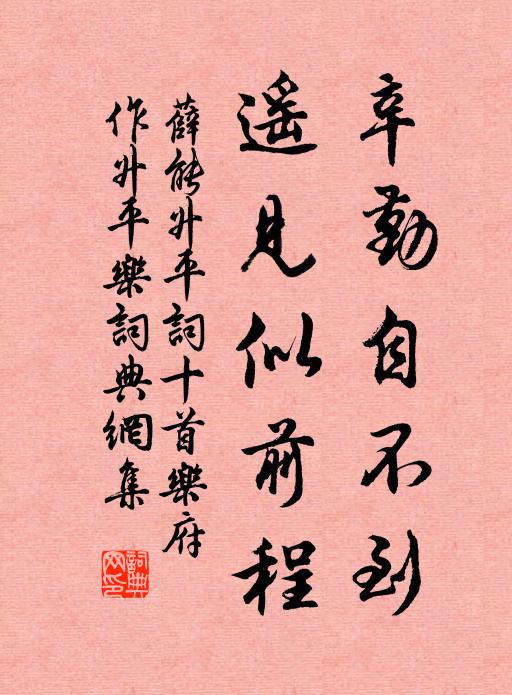 辛勤自不到
遥見似前程
薛能升平詞十首樂府
作升平樂詞典網集
詞典网印